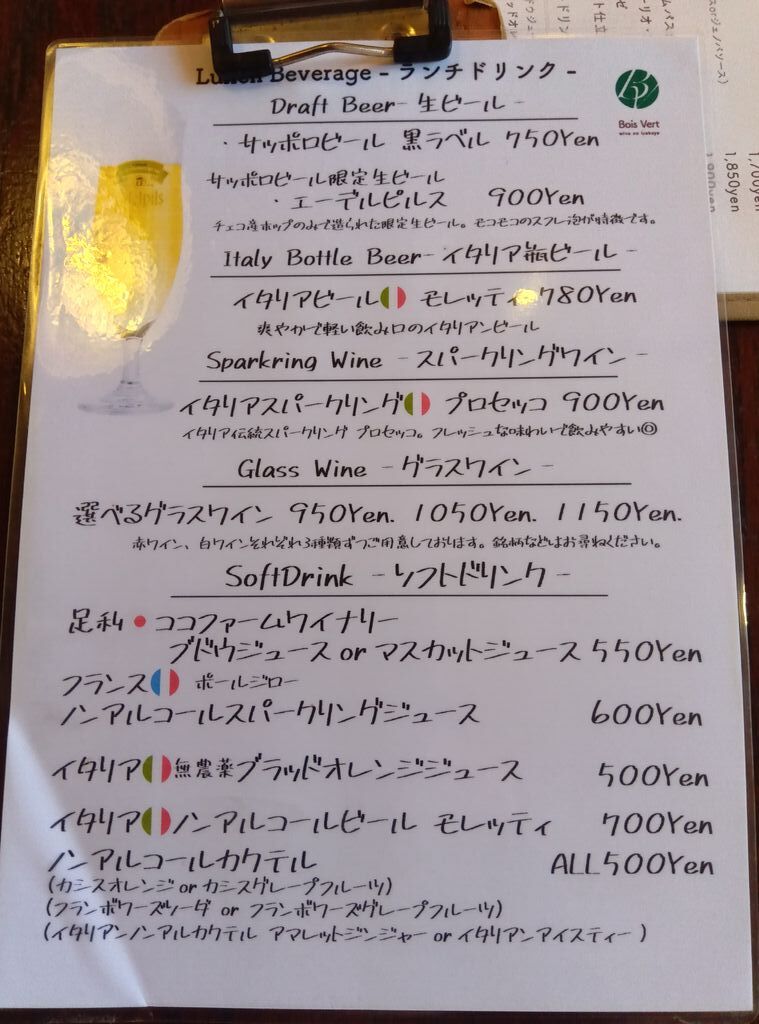 Lunch Beverage - ランチドリンク -
Bois Vert
wine no izakaya
Draft Beer- 生ビール -
・サッポロビール 黒ラベル 750Yen
サッポロビール限定生ビール
・エーデルピルス 900Yen
チェコ産ホップのみで造られた限定生ビール。モコモコのスフレ泡が特徴です。
Italy Bottle Beer- イタリア瓶ビール -
イタリアビール モレッティ 780Yen
爽やかで軽い飲み口のイタリアンビール
Sparkring Wine - スパークリングワイン -
イタリアスパークリング プロセッコ 900Yen
イタリア伝統スパークリング プロセッコ。フレッシュな味わいで飲みやすい◎
Glass Wine - グラスワイン -
選べるグラスワイン 950Yen. 1050Yen. 1150Yen.
赤ワイン、白ワインそれぞれ3種類ずつご用意しております。銘柄などはお尋ねください。
SoftDrink - ソフトドリンク -
足利 ココファームワイナリー
ブドウジュース or マスカットジュース 550Yen
フランス ポールジロー
ノンアルコールスパークリングジュース 600Yen
イタリア 無農薬ブラッドオレンジジュース 500Yen
イタリア ノンアルコールビール モレッティ 700Yen
ノンアルコールカクテル ALL500Yen
(カシスオレンジ or カシスグレープフルーツ)
(フランボワーズソーダ or フランボワーズグレープフルーツ)
(イタリアンノンアルカクテル アマレットジンジャー or イタリアンアイスティー)
1,700yen
1,850yen